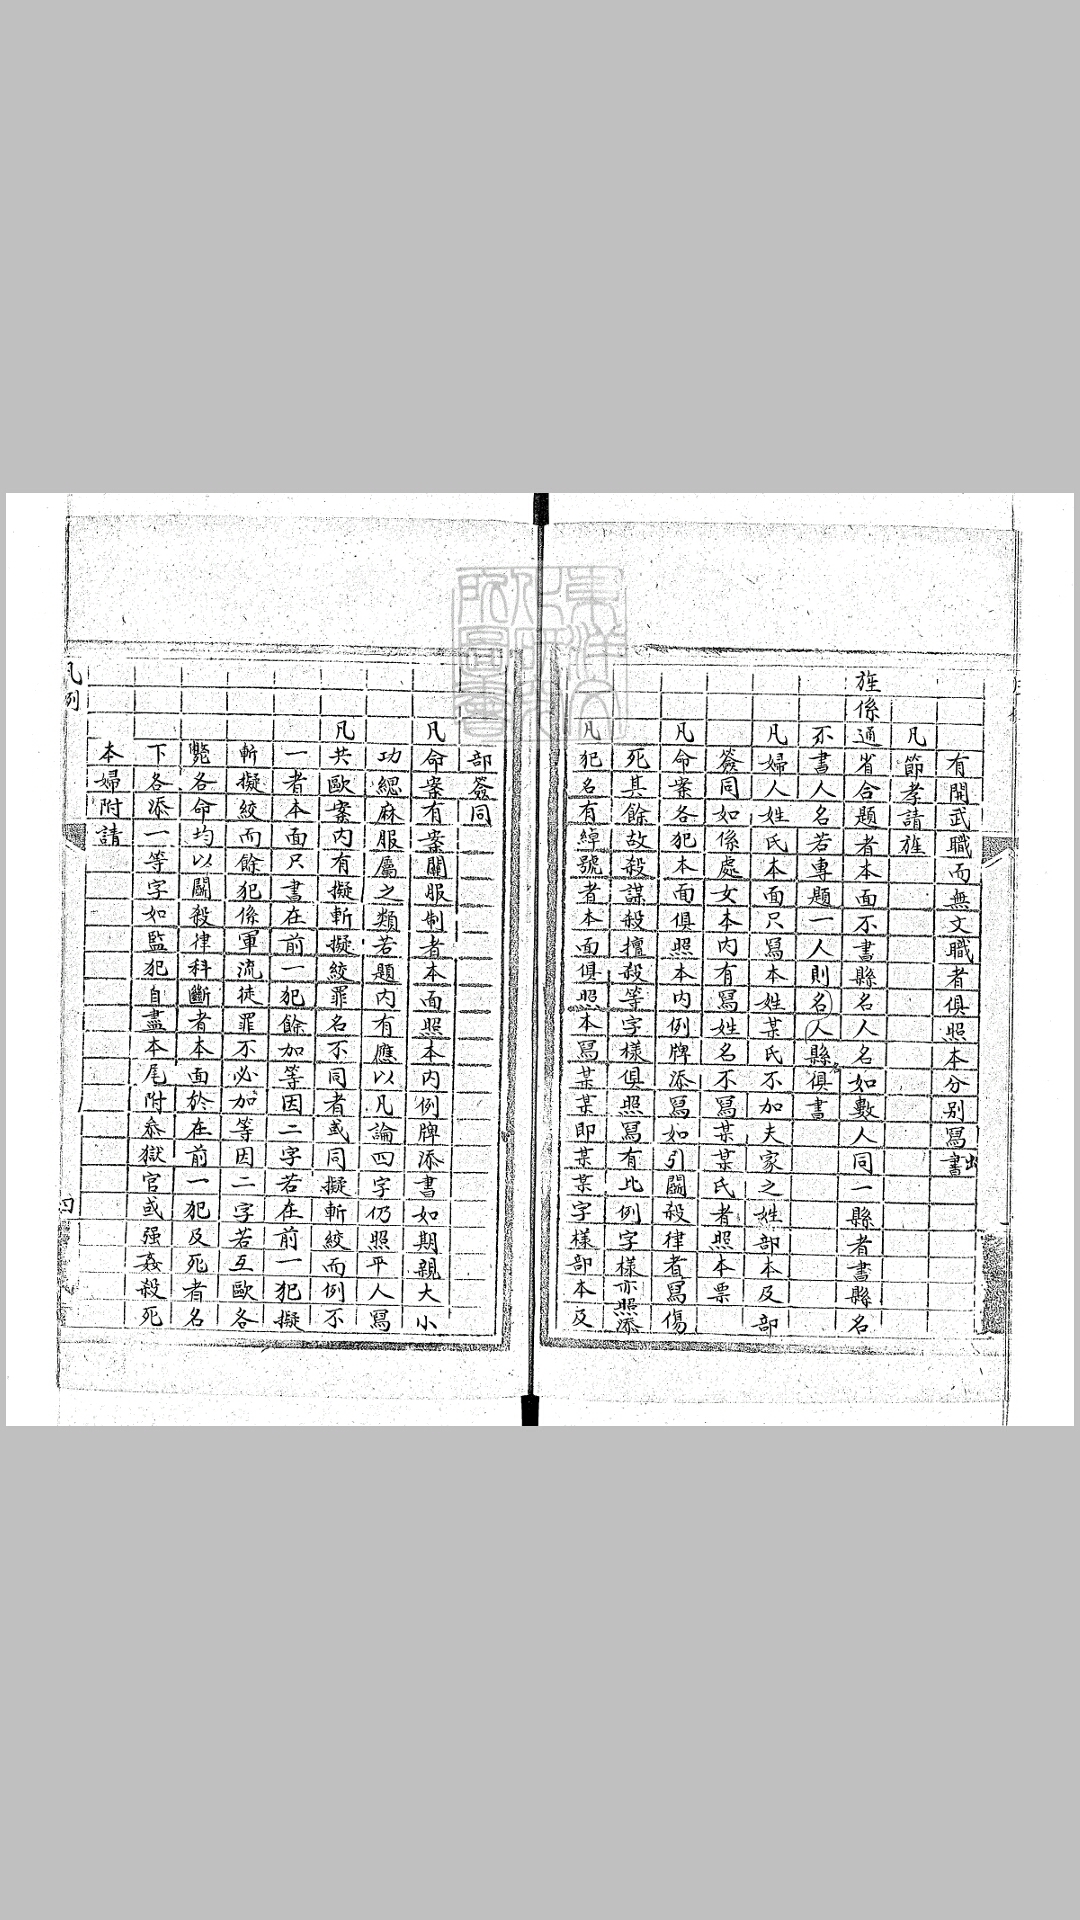 有開武職而無文職者俱照本分别寫出書
凡節孝請旌
旌係通省合題者本面不書縣名人名如數人同一縣者書縣名
不書人名若專題一人則名人縣名俱書
凡婦人姓氏本面只寫本姓某氏不加夫家之姓部本及部
簽同如係處女本内有寫姓名不寫某某氏者照本票
凡命案各犯本面俱照本内例牌添寫如引鬬殺律者寫傷
死其餘故殺謀殺擅殺等字樣俱照寫有比例字樣亦照添
凡犯名有綽號者本面俱照本寫某某即某某字樣部本及
部簽同
凡命案有案關服制者本面照本内例牌添書如期親大小
功緦麻服屬之類若題内有應以凡論四字仍照平人寫
凡共毆案内有擬斬擬絞罪名不同者或同擬斬絞而例不
一者本面只書在前一犯餘加等因二字若在前一犯擬
斬擬絞而餘犯係軍流徒罪不必加等因二字若互毆各
斃各命均以鬬殺律科斷者本面於在前一犯及死者名
下各添一等字如監犯自盡本尾附叅獄官或强姦殺死
本婦附請
凡例
四
東洋文化研究所圖書